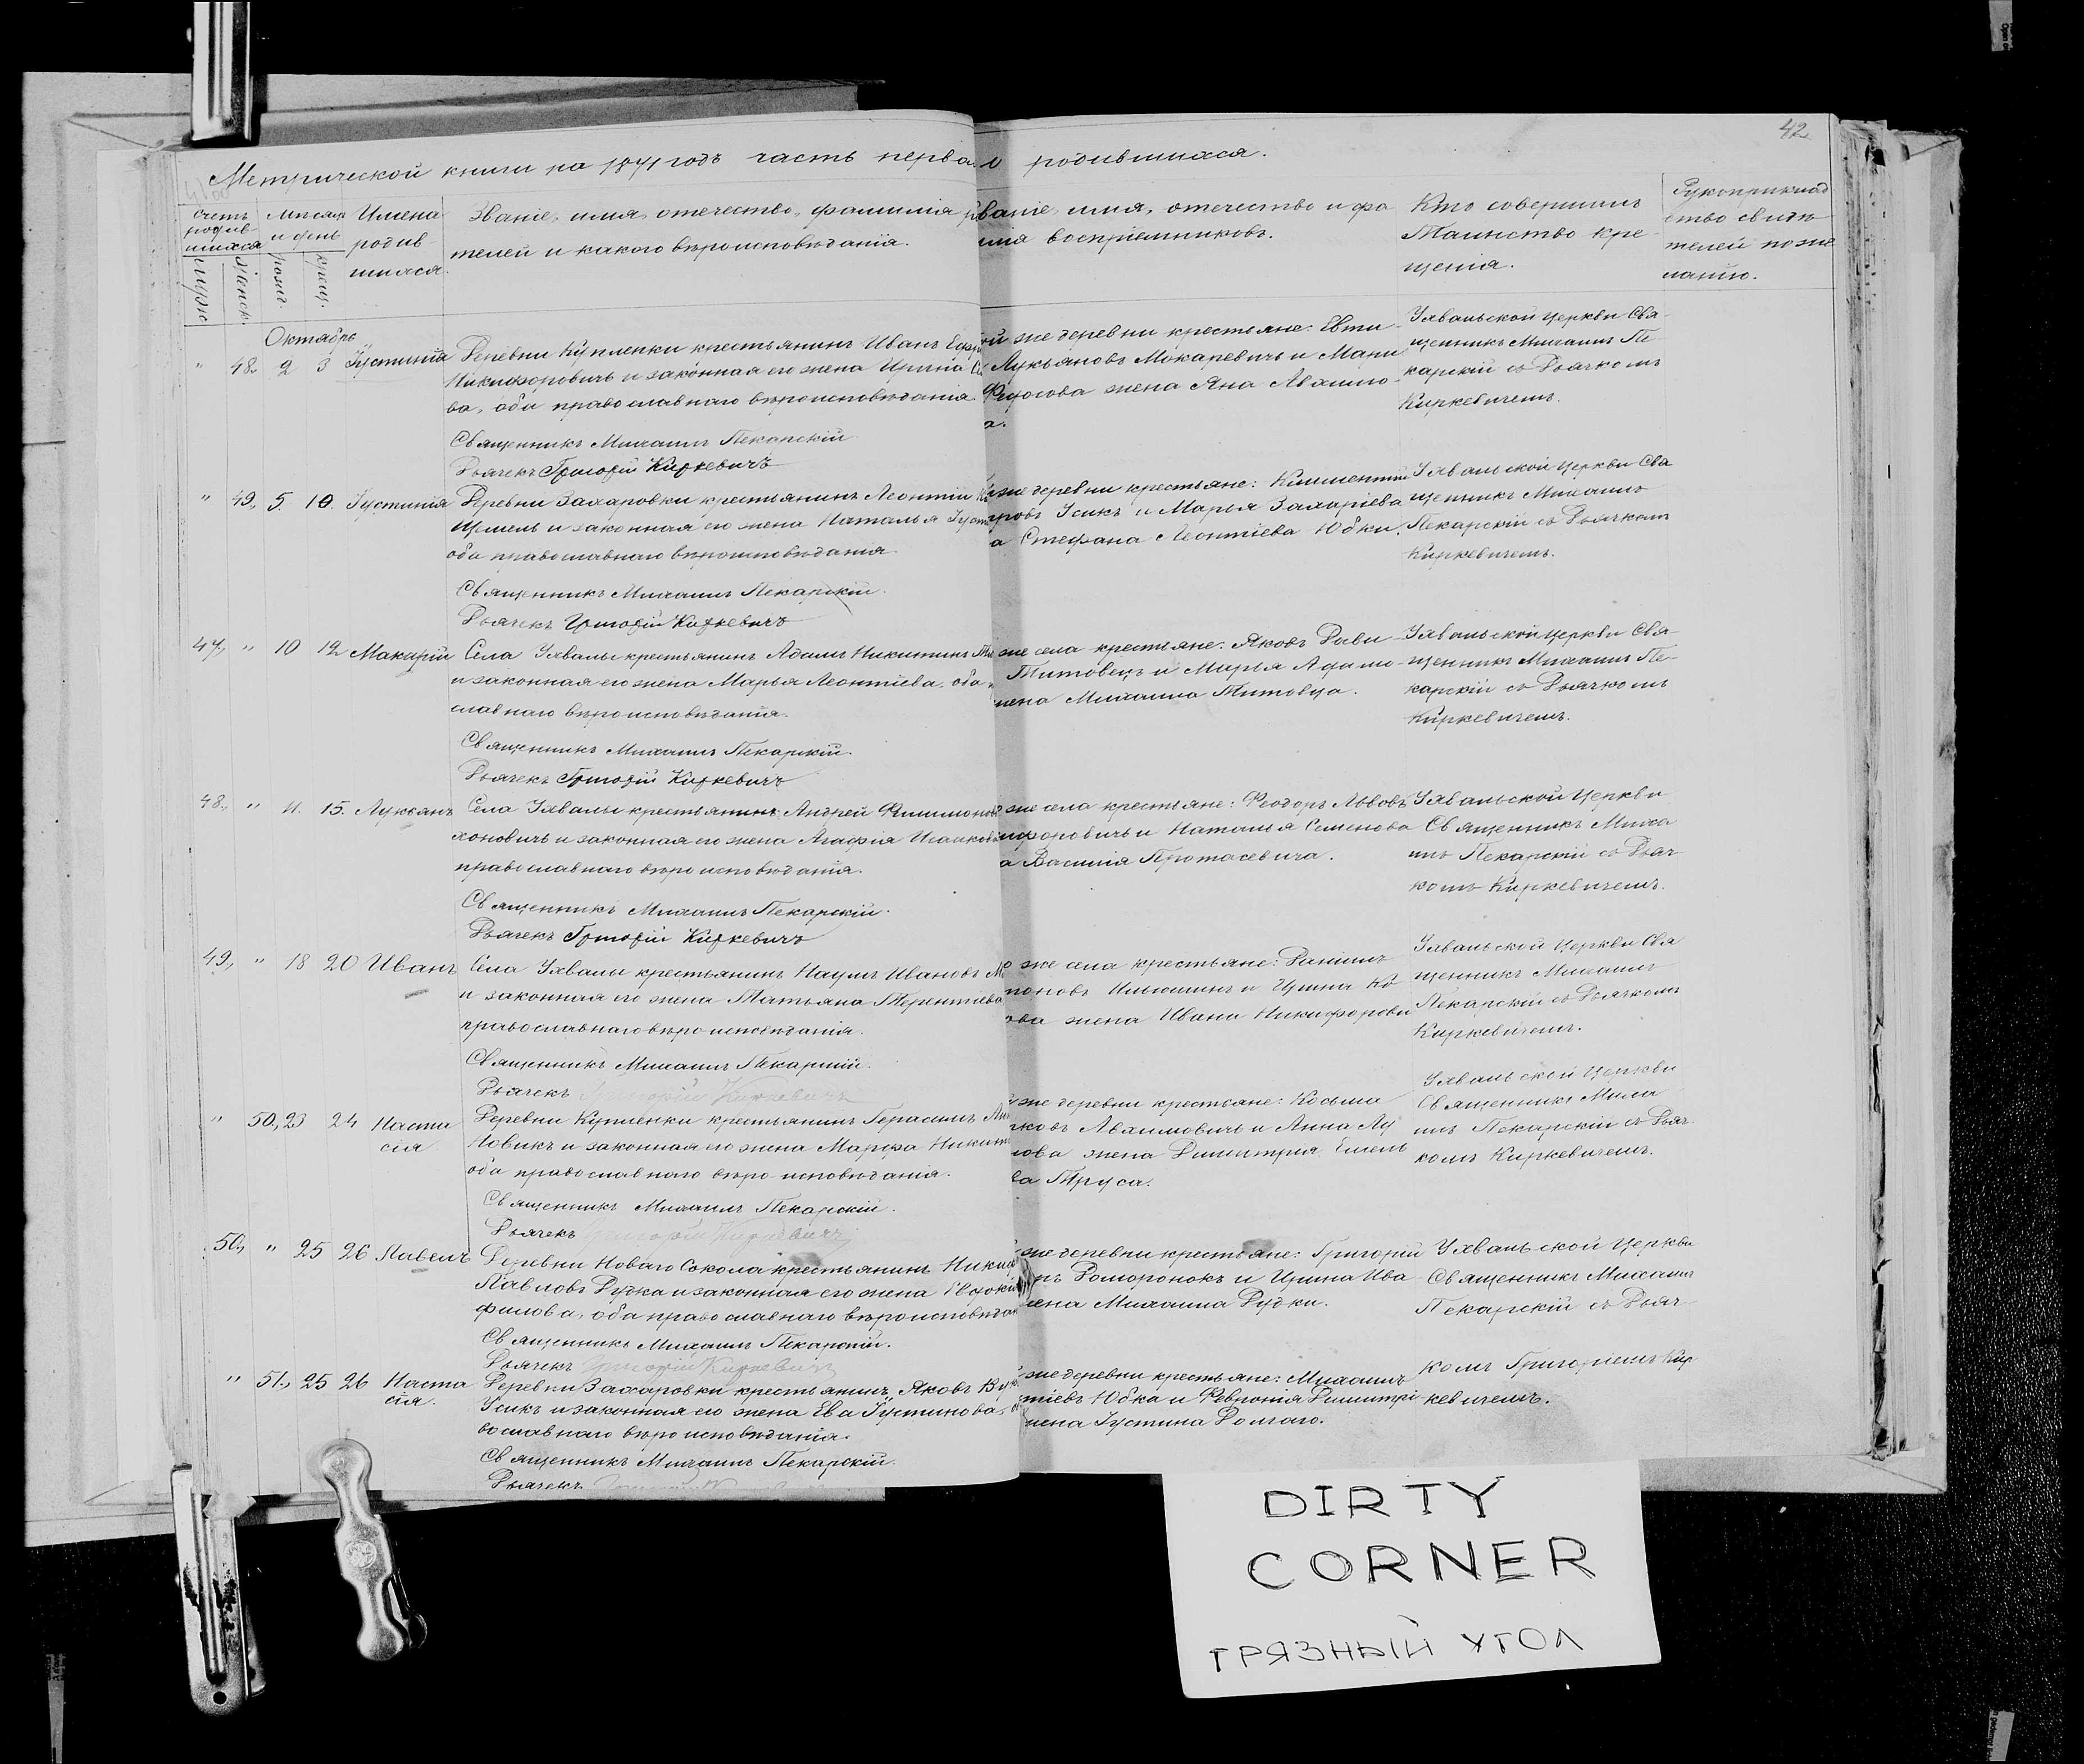 42
Метрической книги на 1871 годъ часть перва о родившихся.
Счетъ родив-
шихся
муж
женск.
Мѣсяцъ
и день
рожд.
крещ.
Имена
родив
шихся.
Званіе, имя, отечество, фамилія
телей и какого вѣроисповѣданія.
ваніе, имя, отечество и фа
лія воспріемниковъ.
Кто совершилъ
Таинство кре-
щенія.
Рукоприклад
ство свидѣ
телей по же
ланію.
Октябрь
" 48. 2 3 Іустинія
Деревни Купленки крестьянинъ Иванъ
Никифоровичъ и законная его жена Ирина
ва, оба православнаго вѣроисповѣданія.
Священникъ Михаилъ Пекарскій
Дьячекъ Григорій Киркевичъ
ой же деревни крестьяне: Евти
Лукьяновъ Макаревичъ и Мари
жена Яна Авхимо-
а.
Ухвальской церкви Свя-
щенникъ Михаилъ Пе-
карскій съ Дьячкомъ
Киркевичемъ.
" 49, 5. 10. Іустинія
Деревни Захаровки крестьянинъ Леонтій
и законная его жена Наталья Іуст
оба православнаго вѣроисповѣданія
Священникъ Михаилъ Пекарскій.
Дьячекъ Григорій Киркевичъ
же деревни крестьяне: Климентій
ровъ Усикъ и Марья Захаріева
а Стефана Леонтіева Юбки.
Ухвальской церкви Свя
щенникъ Михаилъ
Пекарскій съ Дьячкомъ
Киркевичемъ.
47, " 10 12 Макарій
Села Ухвалы крестьянинъ Адамъ Никитинъ
и законная его жена Марья Леонтіева, оба
славнаго вѣроисповѣданія.
Священникъ Михаилъ Пекарскій.
Дьячекъ Григорій Киркевичъ
же села крестьяне: Яковъ Дави
Титовецъ и Марья Адамо-
жена Михаила Титовца.
Ухвальской церкви Свя-
щенникъ Михаилъ Пе-
карскій съ Дьячкомъ
Киркевичемъ.
48, " 11. 15. Лукьянъ
Села Ухвалы крестьянинъ Андрей Филимонов
хоновичъ и законная его жена Агафія Исааков
православнаго вѣроисповѣданія.
Священникъ Михаилъ Пекарскій.
Дьячекъ Григорій Киркевичъ
же села крестьяне: Феодоръ Львовъ
ифоровичъ и Наталья Семенова
а Василія Протасевича.
Ухвальской Церкви
Священникъ Миха
илъ Пекарскій съ Дьяч
комъ Киркевичемъ.
49, " 18 20 Иванъ
Села Ухвалы крестьянинъ Наумъ Ивановъ
и законная его жена Татьяна Терентіева
православнаго вѣроисповѣданія.
Священникъ Михаилъ Пекарскій.
Дьячекъ Григорій Киркевичъ
о же села крестьяне: Даніилъ
поновъ Ильюшинъ и Ирина Ко
ова жена Ивана Никифорови
Ухвальской Церкви Свя
щенникъ Михаилъ
Пекарскій съ Дьячкомъ
Киркевичемъ.
" 50, 23 24 Наста
сія
Деревни Купленки крестьянинъ Герасимъ
Новикъ и законная его жена Марфа Никит
оба православнаго вѣроисповѣданія.
Священникъ Михаилъ Пекарскій.
Дьячекъ Григорій Киркевичъ
же деревни крестьяне: Косьма
ковъ Авхимовичъ и Анна Лу
нова жена Димитрія Емель
ва Труса.
Ухвальской Церкви
Священникъ Миха
илъ Пекарскій съ Дьяч-
комъ Киркевичемъ.
50, " 25 26 Павелъ
Деревни Новаго Сокола крестьянинъ Ники
Павловъ Дудка и законная его жена Евдокі
филова, оба православнаго вѣроисповѣдан
Священникъ Михаилъ Пекарскій.
Дьячекъ Григорій Киркевичъ
же деревни крестьяне: Григорій
ръ Доморонокъ и Ирина Ива
жена Михаила Дудки.
Ухвальской Церкви
Священникъ Михаилъ
Пекарскій съ Дьяч-
" 51, 25 26 Наста
сія.
Деревни Захаровки крестьянинъ Яковъ
Усикъ и законная его жена Ева Іустинова,
вославнаго вѣроисповѣданія.
Священникъ Михаилъ Пекарскій.
Дьячекъ
же деревни крестьяне: Михаилъ
тіевъ Юбка и Февронія Димитрі
жена Іустина Долгаго.
комъ Григоріемъ Кир
кевичемъ.
DIRTY
CORNER
ГРЯЗНЫЙ УГОЛ